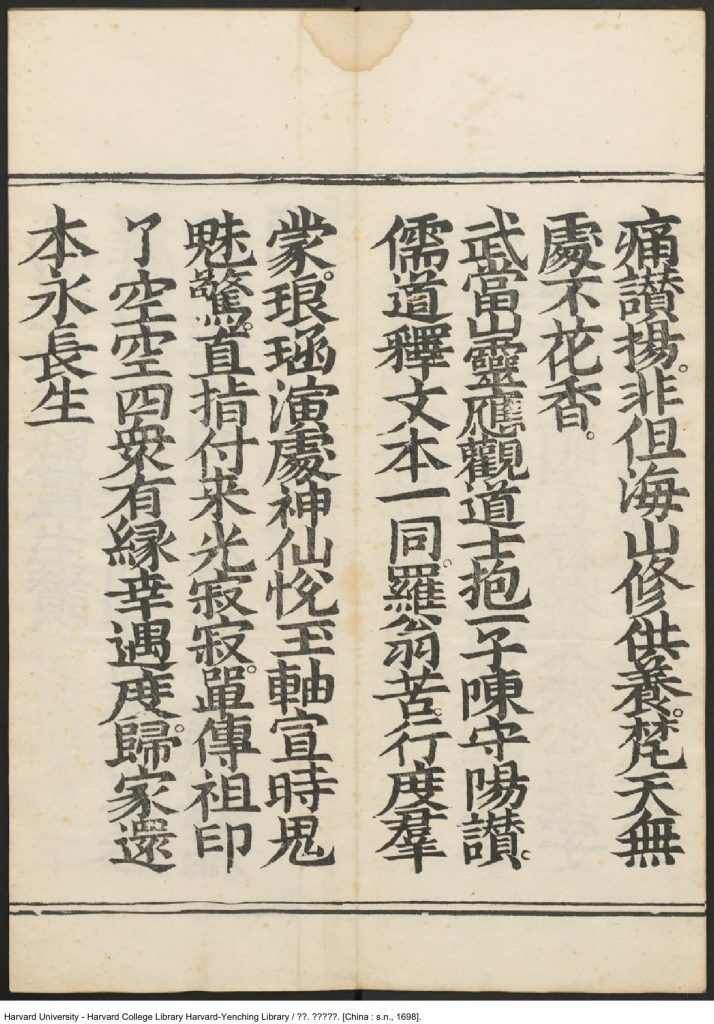 痛讃揚。非但海山修供養。梵天無
處不花香。
武當山靈應觀道士抱一子陳守陽讃。
儒道釋文本一同。羅翁苦行度羣
蒙。琅函演處神仙悅玉軸宣時鬼
魅驚。直指付来光寂寂。單傳祖印
了空空四衆有縁幸遇度。歸家還
本永長生
Harvard University - Harvard College Library Harvard-Yenching Library / ??. ?????. [China : s.n., 1698].